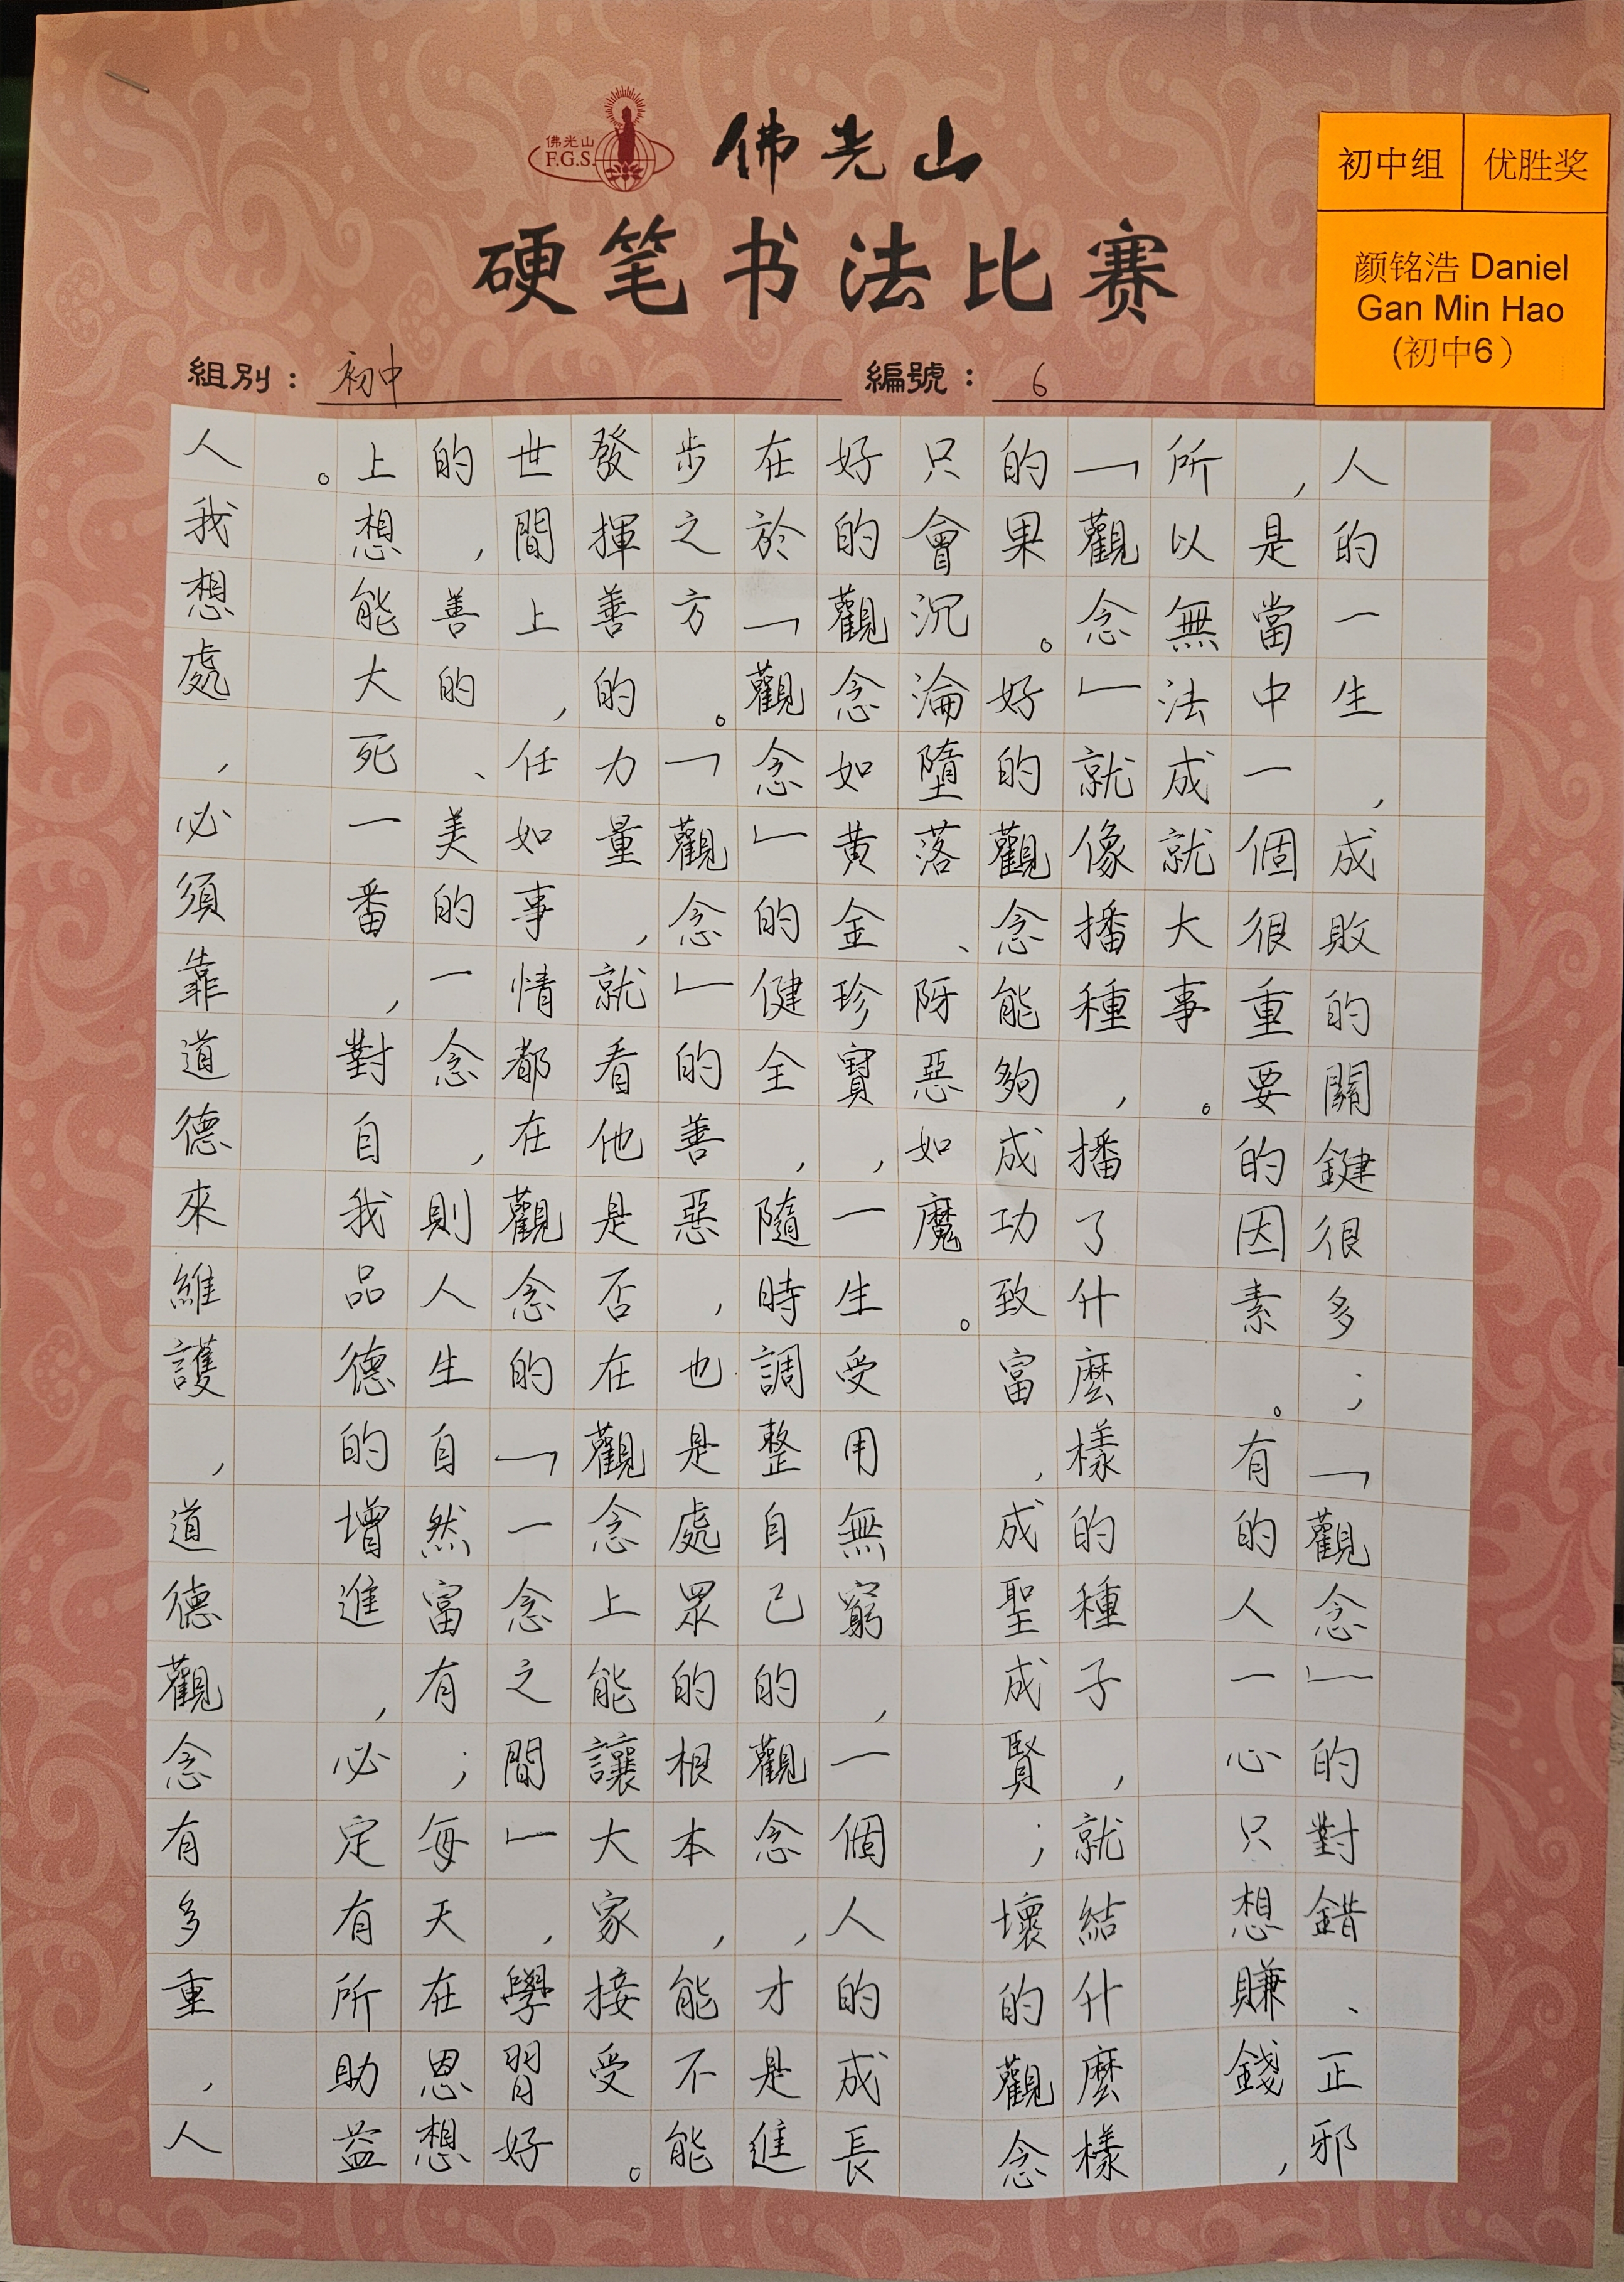 佛光山
F.G.S.
佛光山
硬笔书法比赛
初中组 优胜奖
颜铭浩 Daniel
Gan Min Hao
(初中6）
組別：初中 編號：6
人的一生，成敗的關鍵很多；「觀念」的對錯、正邪
，是當中一個很重要的因素。有的人一心只想賺錢，
所以無法成就大事。
「觀念」就像播種，播了什麼樣的種子，就結什麼樣
的果。好的觀念能夠成功致富，成聖成賢；壞的觀念
只會沉淪墮落、邪惡如魔。
好的觀念如黃金珍寶，一生受用無窮，一個人的成長
在於「觀念」的健全，隨時調整自己的觀念，才是進
步之方。「觀念」的善惡，也是處眾的根本，能不能
發揮善的力量，就看他是否在觀念上能讓大家接受。
世間上，任如事情都在觀念的「一念之間」，學習好
的，善的、美的一念，則人生自然富有；每天在恩想
上想能大死一番，對自我品德的增進，必定有所助益
。
人我想處，必須靠道德來維護，道德觀念有多重，人